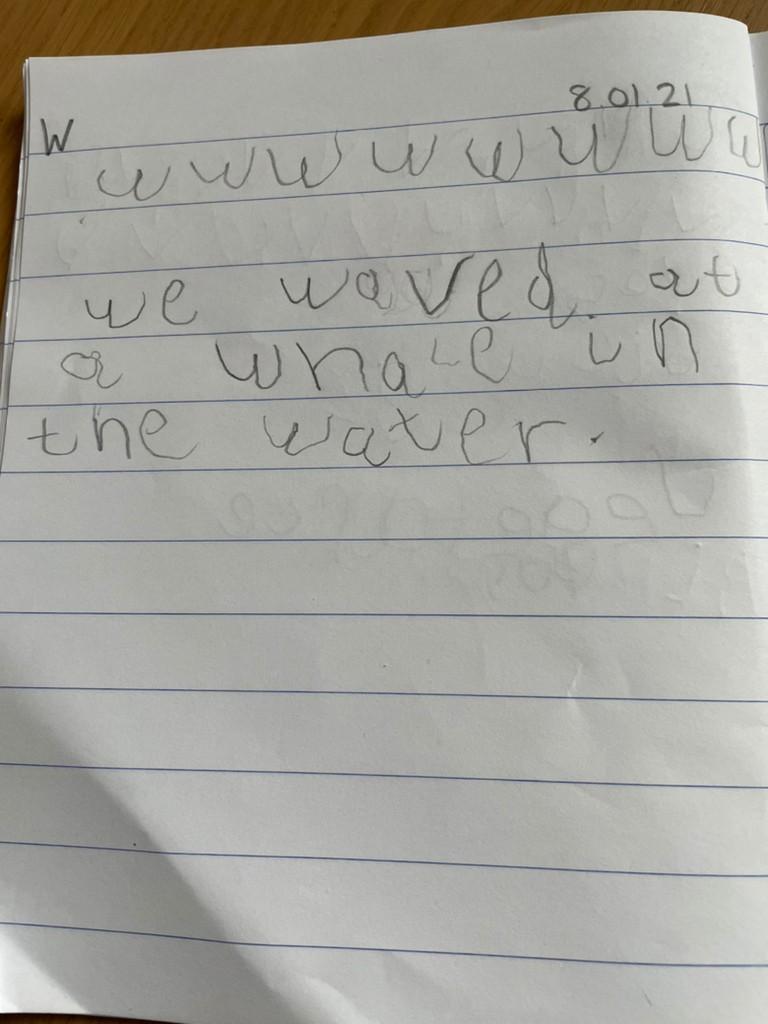 8.01.21
W
w w w w w w w w
we waved at
a whale in
the water.